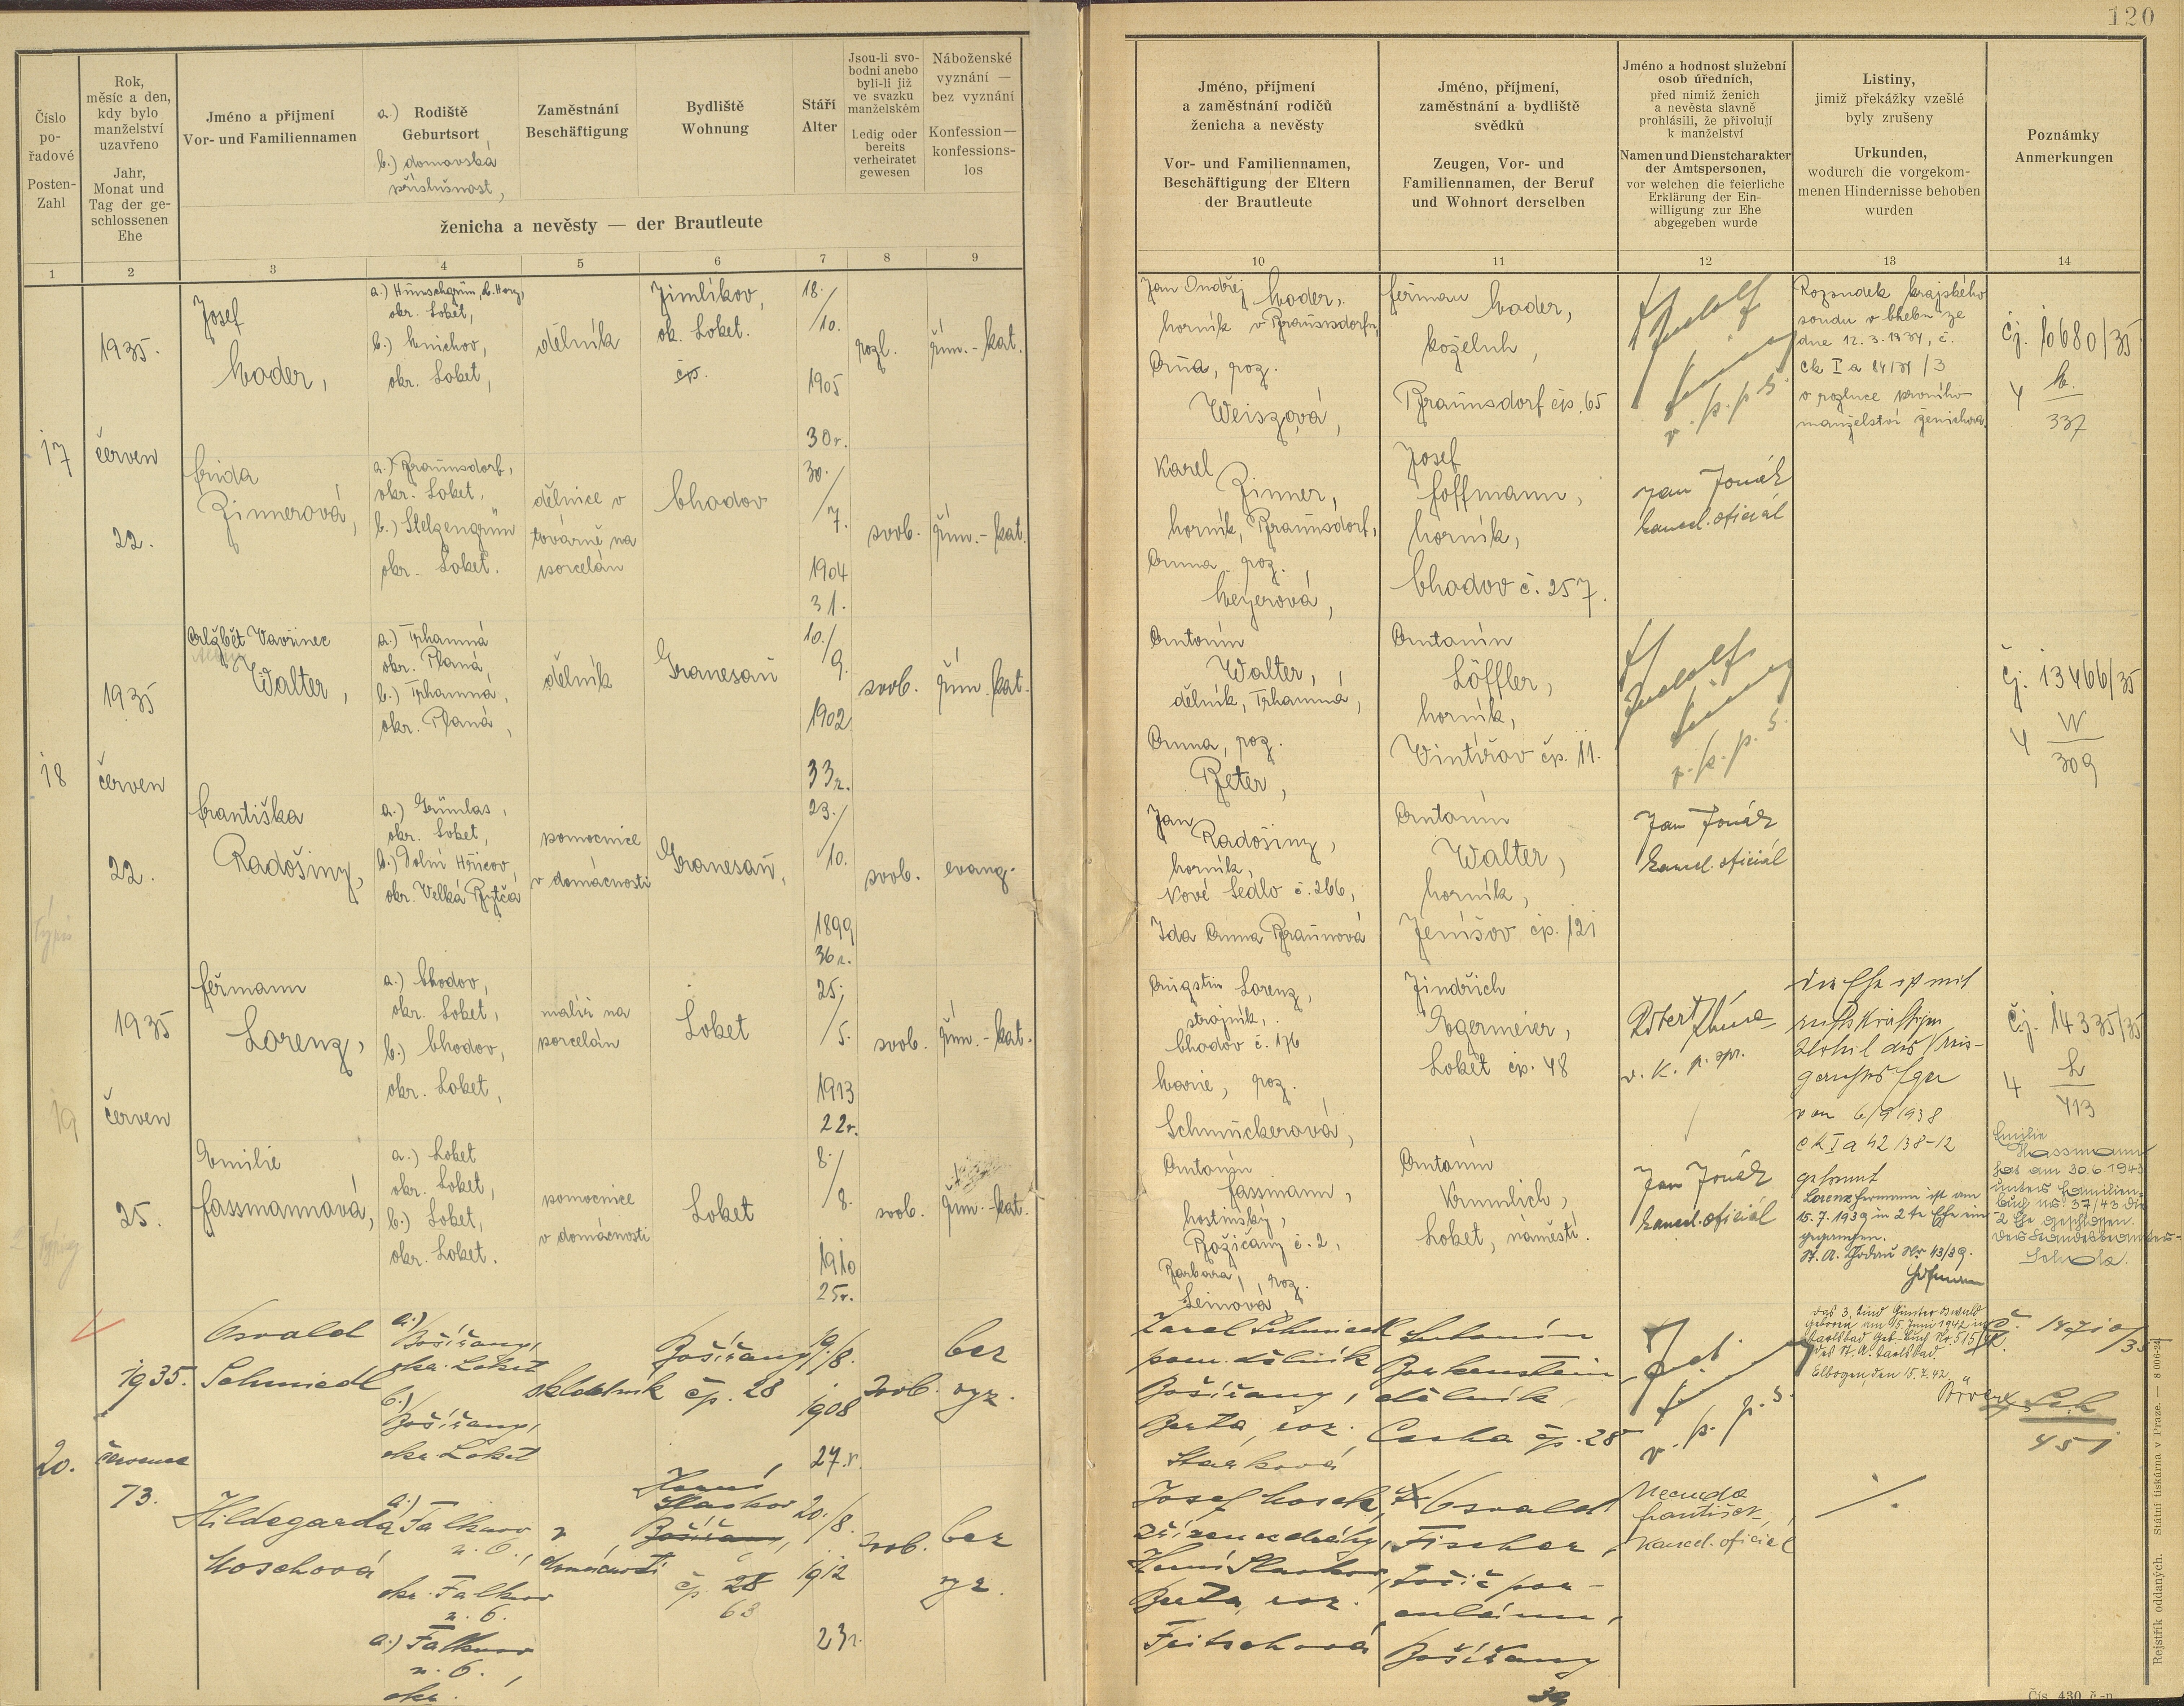 120
Číslo
po-
řadové
Posten-
Zahl
Rok,
měsíc a den,
kdy bylo
manželství
uzavřeno
Jahr,
Monat und
Tag der ge-
schlossenen
Ehe
Jméno a příjmení
Vor- und Familiennamen
a.) Rodiště
Geburtsort
b.) domovská
příslušnost,
Zaměstnání
Beschäftigung
Bydliště
Wohnung
Stáří
Alter
Jsou-li svo-
bodni anebo
byli-li již
ve svazku
manželském
Ledig oder
bereits
verheiratet
gewesen
Náboženské
vyznání —
bez vyznání
Konfession—
konfessions-
los
ženicha a nevěsty — der Brautleute
Jméno, příjmení
a zaměstnání rodičů
ženicha a nevěsty
Vor- und Familiennamen,
Beschäftigung der Eltern
der Brautleute
Jméno, příjmení,
zaměstnání a bydliště
svědků
Zeugen, Vor- und
Familiennamen, der Beruf
und Wohnort derselben
Jméno a hodnost služební
osob úředních,
před nimiž ženich
a nevěsta slavně
prohlásili, že přivolují
k manželství
Namen und Dienstcharakter
der Amtspersonen,
vor welchen die feierliche
Erklärung der Ein-
willigung zur Ehe
abgegeben wurde
Listiny,
jimiž překážky vzešlé
byly zrušeny
Urkunden,
wodurch die vorgekom-
menen Hindernisse behoben
wurden
Poznámky
Anmerkungen
1 2 3 4 5 6 7 8 9 10 11 12 13 14
17
1935.
červen
22.
Josef
Mader,
okr. Loket,
b.) Mnichov,
okr. Loket,
dělník
Jimlíkov,
ok. Loket.
čp.
18./
/10.
1905
30r.
rozl.
řím.-kat.
Jan Ondřej Mader,
horník v Braunsdorfu,
Anna, roz.
Weiszová,
Heřman Mader,
koželuh,
Braunsdorf čp. 65
v. p. p. s.
Rozsudek krajského
soudu v Chebu ze
dne 12.3.1934, č.
Ck I a 84/31/3
o rozluce prvního
manželství ženicha.
Čj. 10680/35
M.
337
Frida
Zinnerová,
a.) Braunsdorf,
okr. Loket,
b.) Stelzengrün
okr. Loket.
dělnice v
továrně na
porcelán
Chodov
30./
/7.
1904
31.
svob.
řím.-kat.
Karel
Zinner,
horník, Braunsdorf,
Anna roz.
Meyerová,
Josef
Hoffmann,
horník,
Chodov č. 257.
Jan Jonák
kancel. oficiál
18
1935
červen
22.
Vavřinec
Walter,
a.) Trhamná
okr. Planá,
b.) Trhamná,
okr. Planá,
dělník
Granesau
10./
9.
1902
33r.
svob.
řím. kat.
Antonín
Walter,
dělník, Trhamná,
Anna, roz.
Peter,
Antonín
Löffler,
horník,
Vintířov čp. 11.
v. p. p. s.
Čj. 13466/35
W
309
Františka
Radošiny,
a.) Grünlas,
okr. Loket,
b.) Dolní Hřicov,
okr. Velká Bytča
pomocnice
v domácnosti
Granesau,
23./
/10.
1899
36r.
svob.
evang.
Jan
Radošiny,
horník,
Nové Sedlo č. 266,
Ida Anna Braunová
Antonín
Walter,
horník,
Jenišov čp. 121
Jan Jonák
kancel. oficiál
19
1935
červen
25.
Heřmann
Lorenz,
a.) Chodov,
okr. Loket,
b.) Chodov,
okr. Loket,
malíř na
porcelán
Loket
25./
/5.
1913
22r.
svob.
řím.-kat.
Augstin Lorenz,
strojník,
Chodov č. 176
Marie, roz.
Schmuckerová,
Jindřich
Egermeier,
Loket čp. 48
Die Ehe ist mit
rechtskräftigem
Urteil des Kreis-
gerichts Eger
von 6/9 1938
Ck I a 42/38-12
getrennt
Lorenz Hermann ist am
15.7.1939 in 2te Ehe ein-
gegangen.
St. A. Chodau Nr 43/39.
Hofmann
Čj. 14335/35
L
413
Emilie
Hassmannová,
a.) Loket
okr. Loket,
b.) Loket,
okr. Loket.
pomocnice
v domácnosti
Loket
8./
/8.
1910
25r.
svob.
řím.-kat.
Antonín
Hassmann,
hostinský,
Božičany č. 2,
Barbora, roz.
Leinová,
Antonín
Krumlich,
Loket, náměstí.
Jan Jonák
kancel. oficiál
Emilie
Hassmann
hat am 30.6.1943
unter Familien-
buch Nr. 37/43 die
2 Ehe geschlossen.
20.
1935.
července
13.
Osvald
Schmiedl
a.)
Božíčany,
okr. Loket
b.)
Božíčany,
okr. Loket
Božíčany
čp. 28
19/8.
1908
27.r.
svob.
bez
vyz.
Karel Schmiedl
pom. dělník
Božíčany,
Berta, roz.
Starková
Antonín
Birkenstein
dělník,
čp. 28
v. p. p. s.
Das 3. Kind Günter Oswald
geboren am 15. Juni 1942 in
Karlsbad Geb. Buch Nr. 515/42
des St. A. Karlsbad.
Elbogen, den 15.7.42.
Sch
451
Hildegarda
Moschová
a.) Falknov
n. O.,
okr. Falknov
n. O.
a.) Falknov
n. O.,
okr.
v
domácnosti
Horní
Slavkov
Božíčany,
čp. 28
63
20./8.
1912
23r.
svob.
bez
vyz.
Josef Mosch,
zřízenec dráhy,
Horní Slavkov,
Berta, roz.
Fritschová
Osvald
Fischer,
točíř por-
culánu,
Božíčany
39
Necuda
František,
kancel. oficiál
Rejstřík oddaných. Státní tiskárna v Praze. — 8006-24
Čís. 430 č.-n.